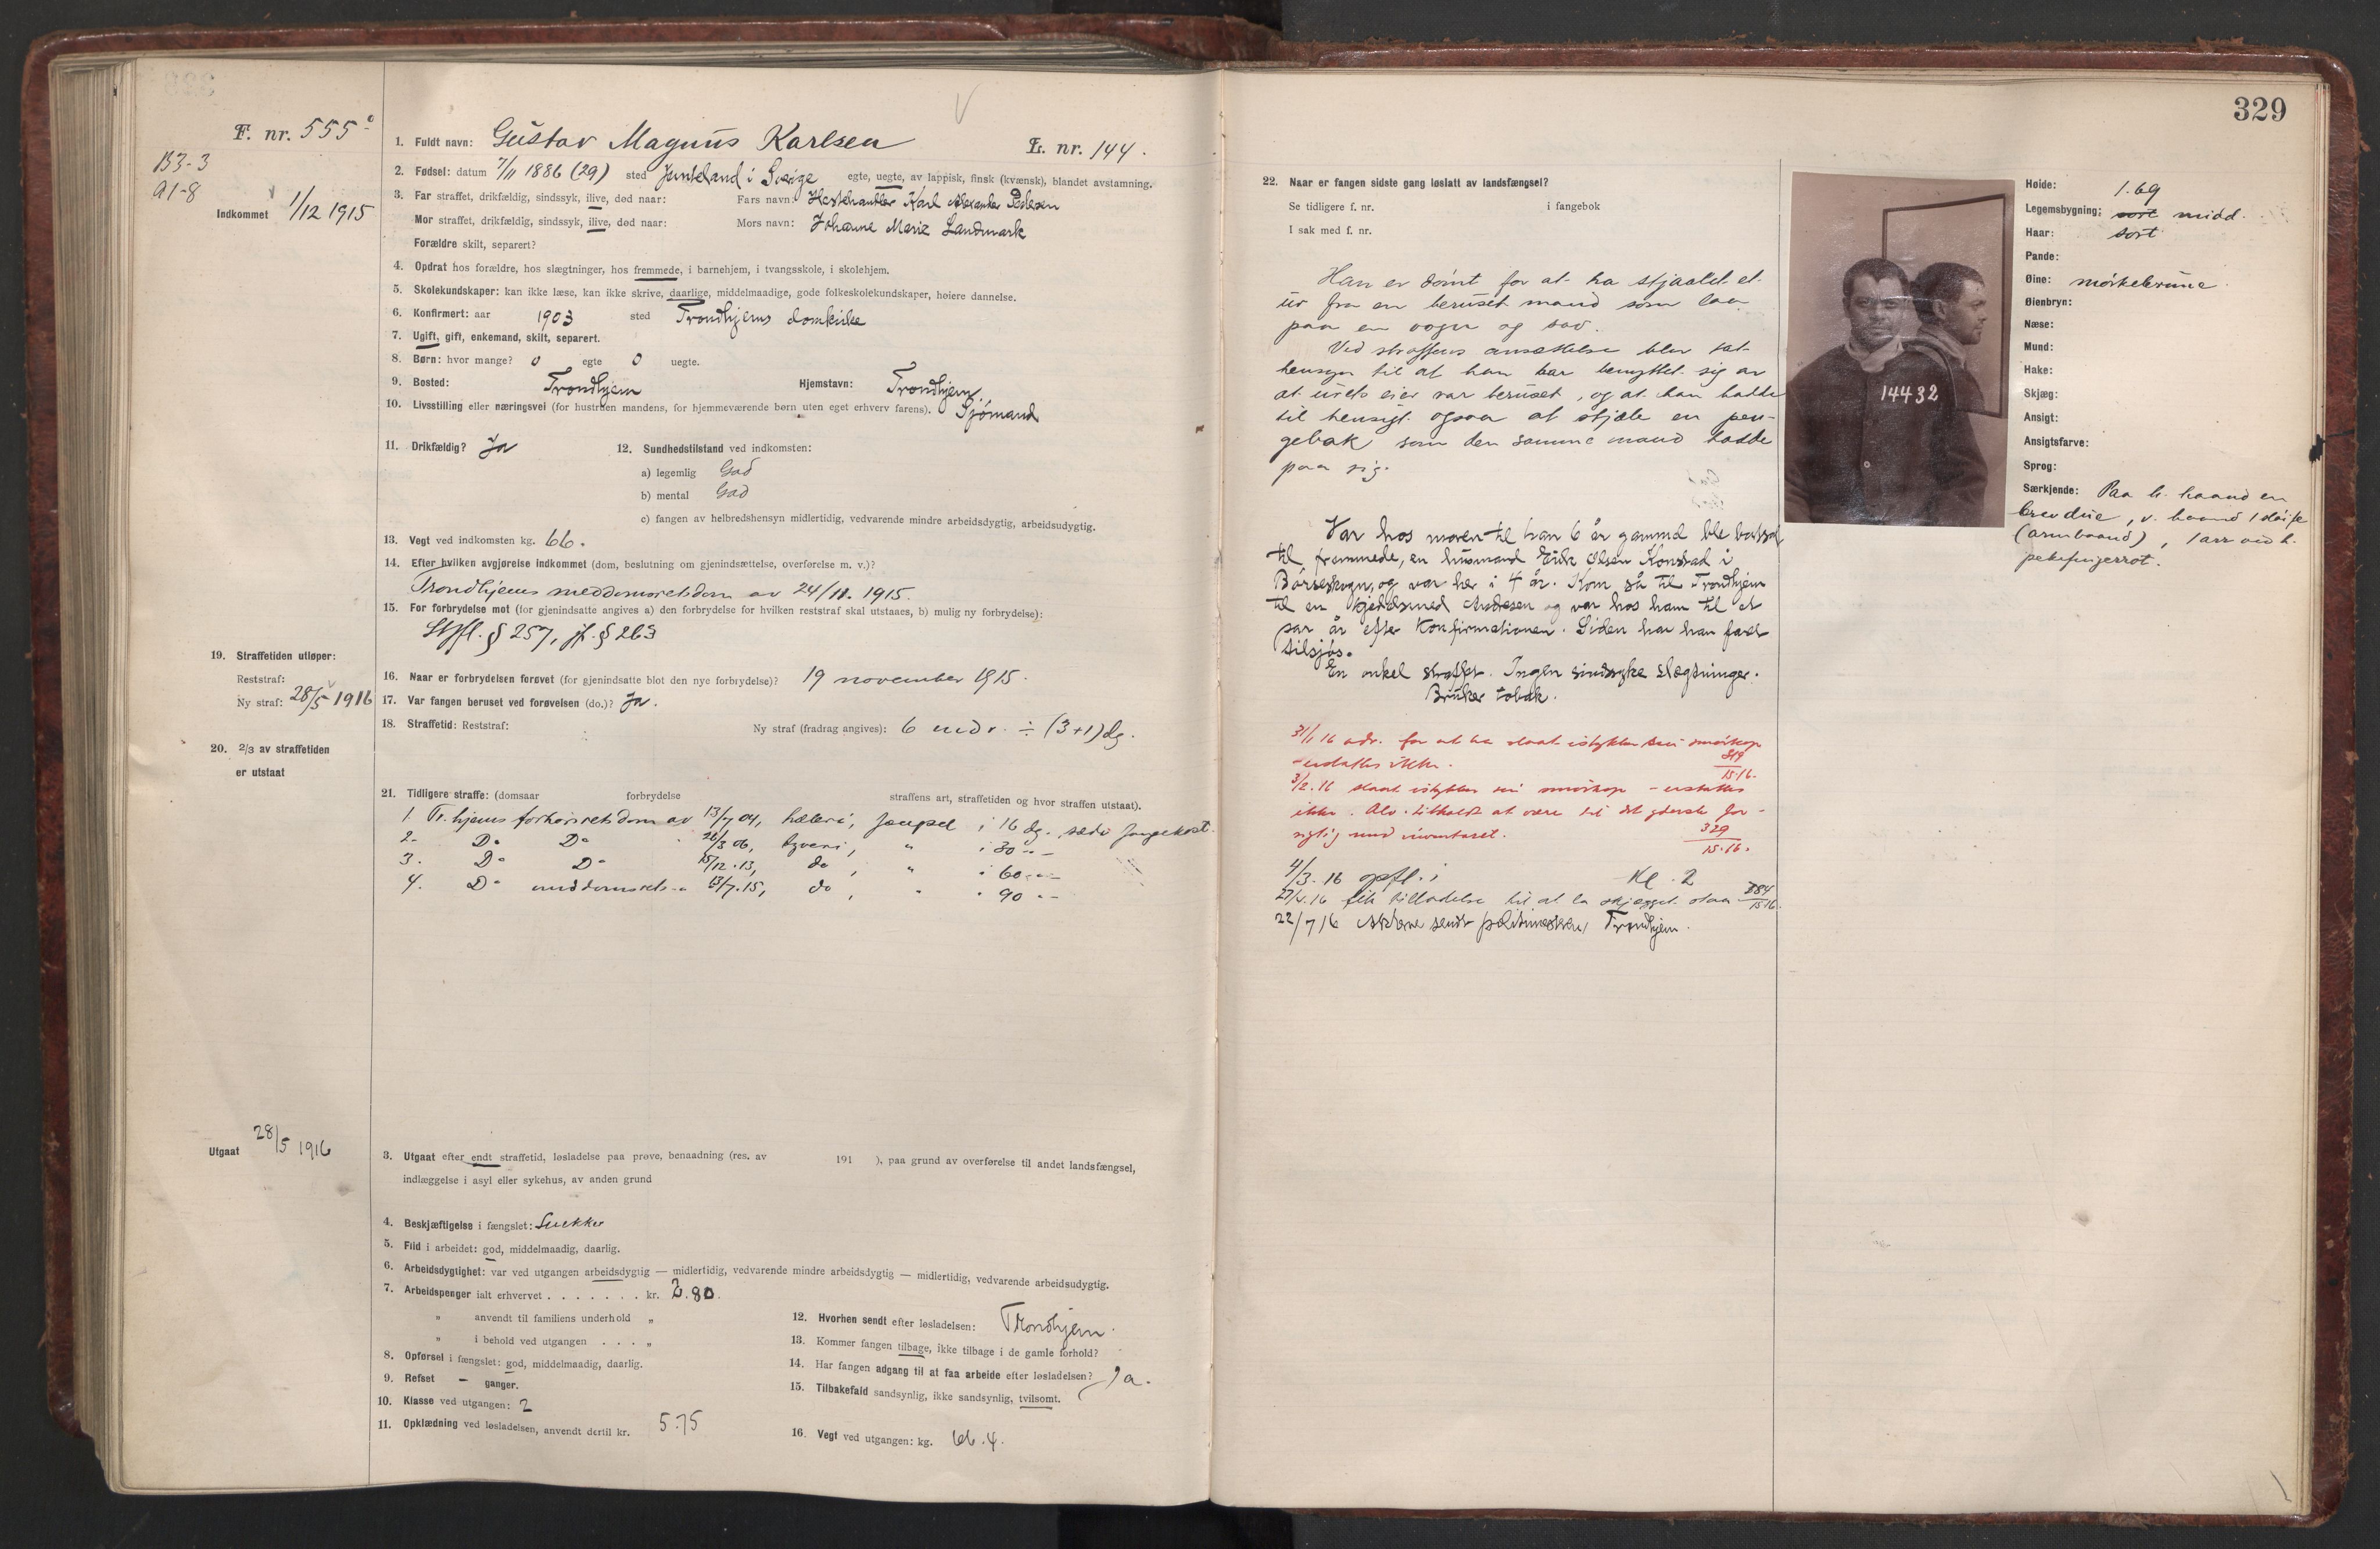 F. nr. 555
B3-3
A1-8
Indkommet 1/12 1915
1. Fuldt navn: Gustav Magnus Karlsen
L. nr. 144.
2. Fødsel: datum 7/11 1886 (29) sted Jemteland i Sverige egte, uegte, av lappisk, finsk (kvænsk), blandet avstamning.
3. Far straffet, drikfældig, sindssyk, ilive, død naar: Fars navn: Hestehandler Karl Alexander Pedersen
Mor straffet, drikfældig, sindssyk, ilive, død naar: Mors navn: Johanne Marie Landmark
Forældre skilt, separert?
4. Opdrat hos forældre, hos slægtninger, hos fremmede, i barnehjem, i tvangsskole, i skolehjem.
5. Skolekundskaper: kan ikke læse, kan ikke skrive, daarlige, middelmaadige, gode folkeskolekundskaper, høiere dannelse.
6. Konfirmert: aar 1903 sted Trondhjems domkirke
7. Ugift, gift, enkemand, skilt, separert.
8. Børn: hvor mange? 0 egte 0 uegte.
9. Bosted: Trondhjem Hjemstavn: Trondhjem
10. Livsstilling eller næringsvei (for hustruen mandens, for hjemmeværende børn uten eget erhverv farens). Sjömand
11. Drikfældig? Ja
12. Sundhedstilstand ved indkomsten:
a) legemlig God
b) mental God
c) fangen av helbredshensyn midlertidig, vedvarende mindre arbeidsdygtig, arbeidsudygtig.
13. Vegt ved indkomsten kg. 66.
14. Efter hvilken avgjørelse indkommet (dom, beslutning om gjenindsættelse, overførelse m. v.)?
Trondhjems meddomsretsdom av 24/11. 1915.
15. For forbrydelse mot (for gjenindsatte angives a) den forbrydelse for hvilken reststraf skal utstaaes, b) mulig ny forbrydelse):
Strfl. § 257, jf. § 263
19. Straffetiden utløper:
Reststraf:
Ny straf: 28/5 1916
16. Naar er forbrydelsen forøvet (for gjenindsatte blot den nye forbrydelse)? 19 november 1915.
17. Var fangen beruset ved forøvelsen (do.)? Ja.
18. Straffetid: Reststraf: Ny straf (fradrag angives): 6 mdr. ÷ (3+1) dg.
20. 2/3 av straffetiden
er utstaat
21. Tidligere straffe: (domsaar forbrydelse straffens art, straffetiden og hvor straffen utstaat).
1. Tr.hjems forhørsretsdom av 13/7 04, hæleri, fængsel i 16 dg. sædv fangekost.
2. Do Do 26/3 06, tyveri, " i 30 "-
3. Do Do 15/12.13, do , " i 60 "-
4. Do meddomsrets-" 13/7.15, do , " " 90 "-
Utgaat 28/5 1916
3. Utgaat efter endt straffetid, løsladelse paa prøve, benaadning (res. av 191 ), paa grund av overførelse til andet landsfængsel,
indlæggelse i asyl eller sykehus, av anden grund
4. Beskjæftigelse i fængslet: Snekker
5. Flid i arbeidet: god, middelmaadig, daarlig.
6. Arbeidsdygtighet: var ved utgangen arbeidsdygtig — midlertidig, vedvarende mindre arbeidsdygtig — midlertidig, vedvarende arbeidsudygtig.
7. Arbeidspenger ialt erhvervet . . . . . . . kr. 2.80.
" anvendt til familiens underhold "
" i behold ved utgangen . . . . "
8. Opførsel i fængslet: god, middelmaadig, daarlig.
9. Refset - ganger.
10. Klasse ved utgangen: 2
11. Opklædning ved løsladelsen, anvendt dertil kr. 5.75
12. Hvorhen sendt efter løsladelsen: Trondhjem.
13. Kommer fangen tilbage, ikke tilbage i de gamle forhold?
14. Har fangen adgang til at faa arbeide efter løsladelsen? Ja.
15. Tilbakefald sandsynlig, ikke sandsynlig, tvilsomt.
16. Vegt ved utgangen: kg. 66.4.
329
22. Naar er fangen sidste gang løslatt av landsfængsel?
Se tidligere f. nr. i fangebok
I sak med f. nr.
Han er dömt for at ha stjaalet et
ur fra en beruset mand som laa
paa en vogn og sov.
Ved straffens ansættelse blev tat
hensyn til at han har benyttet sig av
at urets eier var beruset, og at han hadde
til hensigt ogsaa at stjæle en pen-
gebok som den samme mand hadde
paa sig.
Var hos moren til han 6 år gammel ble bortsat
til fremmede, en husmand Erik Olsen i
Börseskogn, og var her i 4 år. Kom så til Trondhjem
til en Andresen og var hos ham til et
par år efter Konfirmationen. Siden har han faret
tilsjös.
En onkel straffet. Ingen sindssyke slægtninger.
Bruker tobak.
31/1 16 adv. for at ha slaat istykker sin smörkop
- erstattes ikke. 319/15-16.
3/2.16 slaat istykker sin smörkop - erstattes
ikke. Alv. tilholdt at være til det yderste for-
sigtig med inventaret. 329/15-16.
4/3.16 opfl. i Kl. 2
27/4.16 fik tilladelse til at la skjægget staa 15-16.
22/7 16 Akterne sendt politimesteren, Trondhjem.
14432
Høide: 1.69
Legemsbygning: sort midd.
Haar: sort
Pande:
Øine: mörkebrune.
Øienbryn:
Næse:
Mund:
Hake:
Skjæg:
Ansigt:
Ansigtsfarve:
Sprog:
Særkjende: Paa h. haand en
brevdue, v. haand 1 slöife
(armbaand), 1 arr ved h.
pekefingerrot.